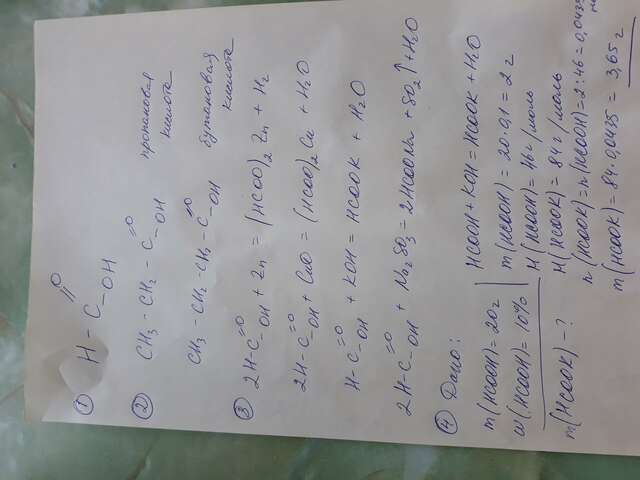 ① H - C =O -OH
② CH3 - CH2 - C =O -OH пропановая кислота
CH3 - CH2 - CH2 - C =O -OH бутановая кислота
③ 2H-C =O -OH + Zn = (HCOO)2 Zn + H2
2H-C =O -OH + CuO = (HCOO)2 Cu + H2O
H-C =O -OH + KOH = HCOOK + H2O
2H-C =O -OH + Na2SO3 = 2HCOONa + SO2↑ + H2O
④ Дано:
m(HCOOH) = 20г
ω(HCOOH) = 10%
m(HCOOK) - ?
HCOOH + KOH = HCOOK + H2O
m(HCOOH) = 20·0,1 = 2 г
M(HCOOH) = 46 г/моль
M(HCOOK) = 84 г/моль
n(HCOOK) = n(HCOOH) = 2:46 = 0,0435
m(HCOOK) = 84·0,0435 = 3,65 г